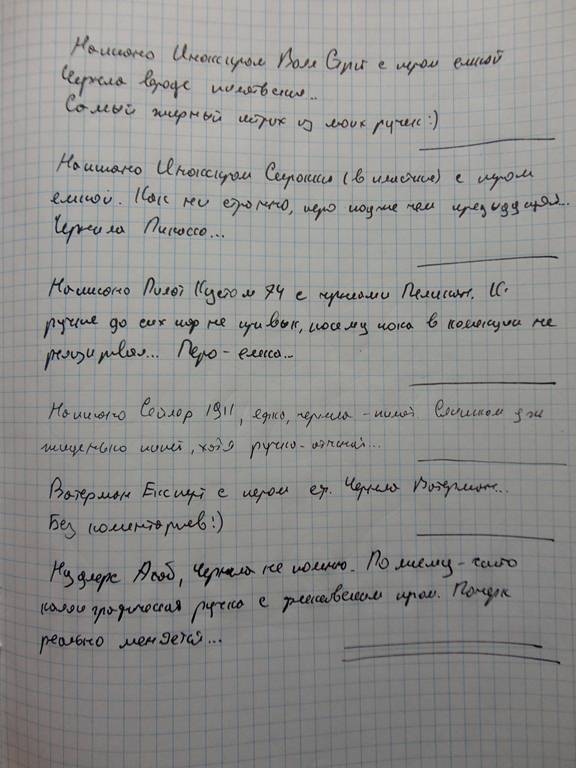 Написано Иноксцром Волл Стрит с пером емкой
Чернила вроде пилотовские..
Самый жирный штрих из моих ручек:)
Написано Иноксцром (в пластике) с пером
емкой. Как ни странно, перо поуже чем предыдущая...
Чернила Пикассо...
Написано Пилот Кустом 74 с чернилами Пеликан. К
ручке до сих пор не привык, посему пока в коллекции не
... Перо - емка...
Написано Сейлор 1911, едко, чернила - пилот Слишком уж
жиденько пишет, хотя ручка-отличная...
Ватерман Експерт с пером еф. Чернила Ватерман...
Без коментариев!)
Нудлерс Ахаб, Чернила не помню. По моему - чисто
калиграфическая ручка с пером. Почерк
реально меняется...